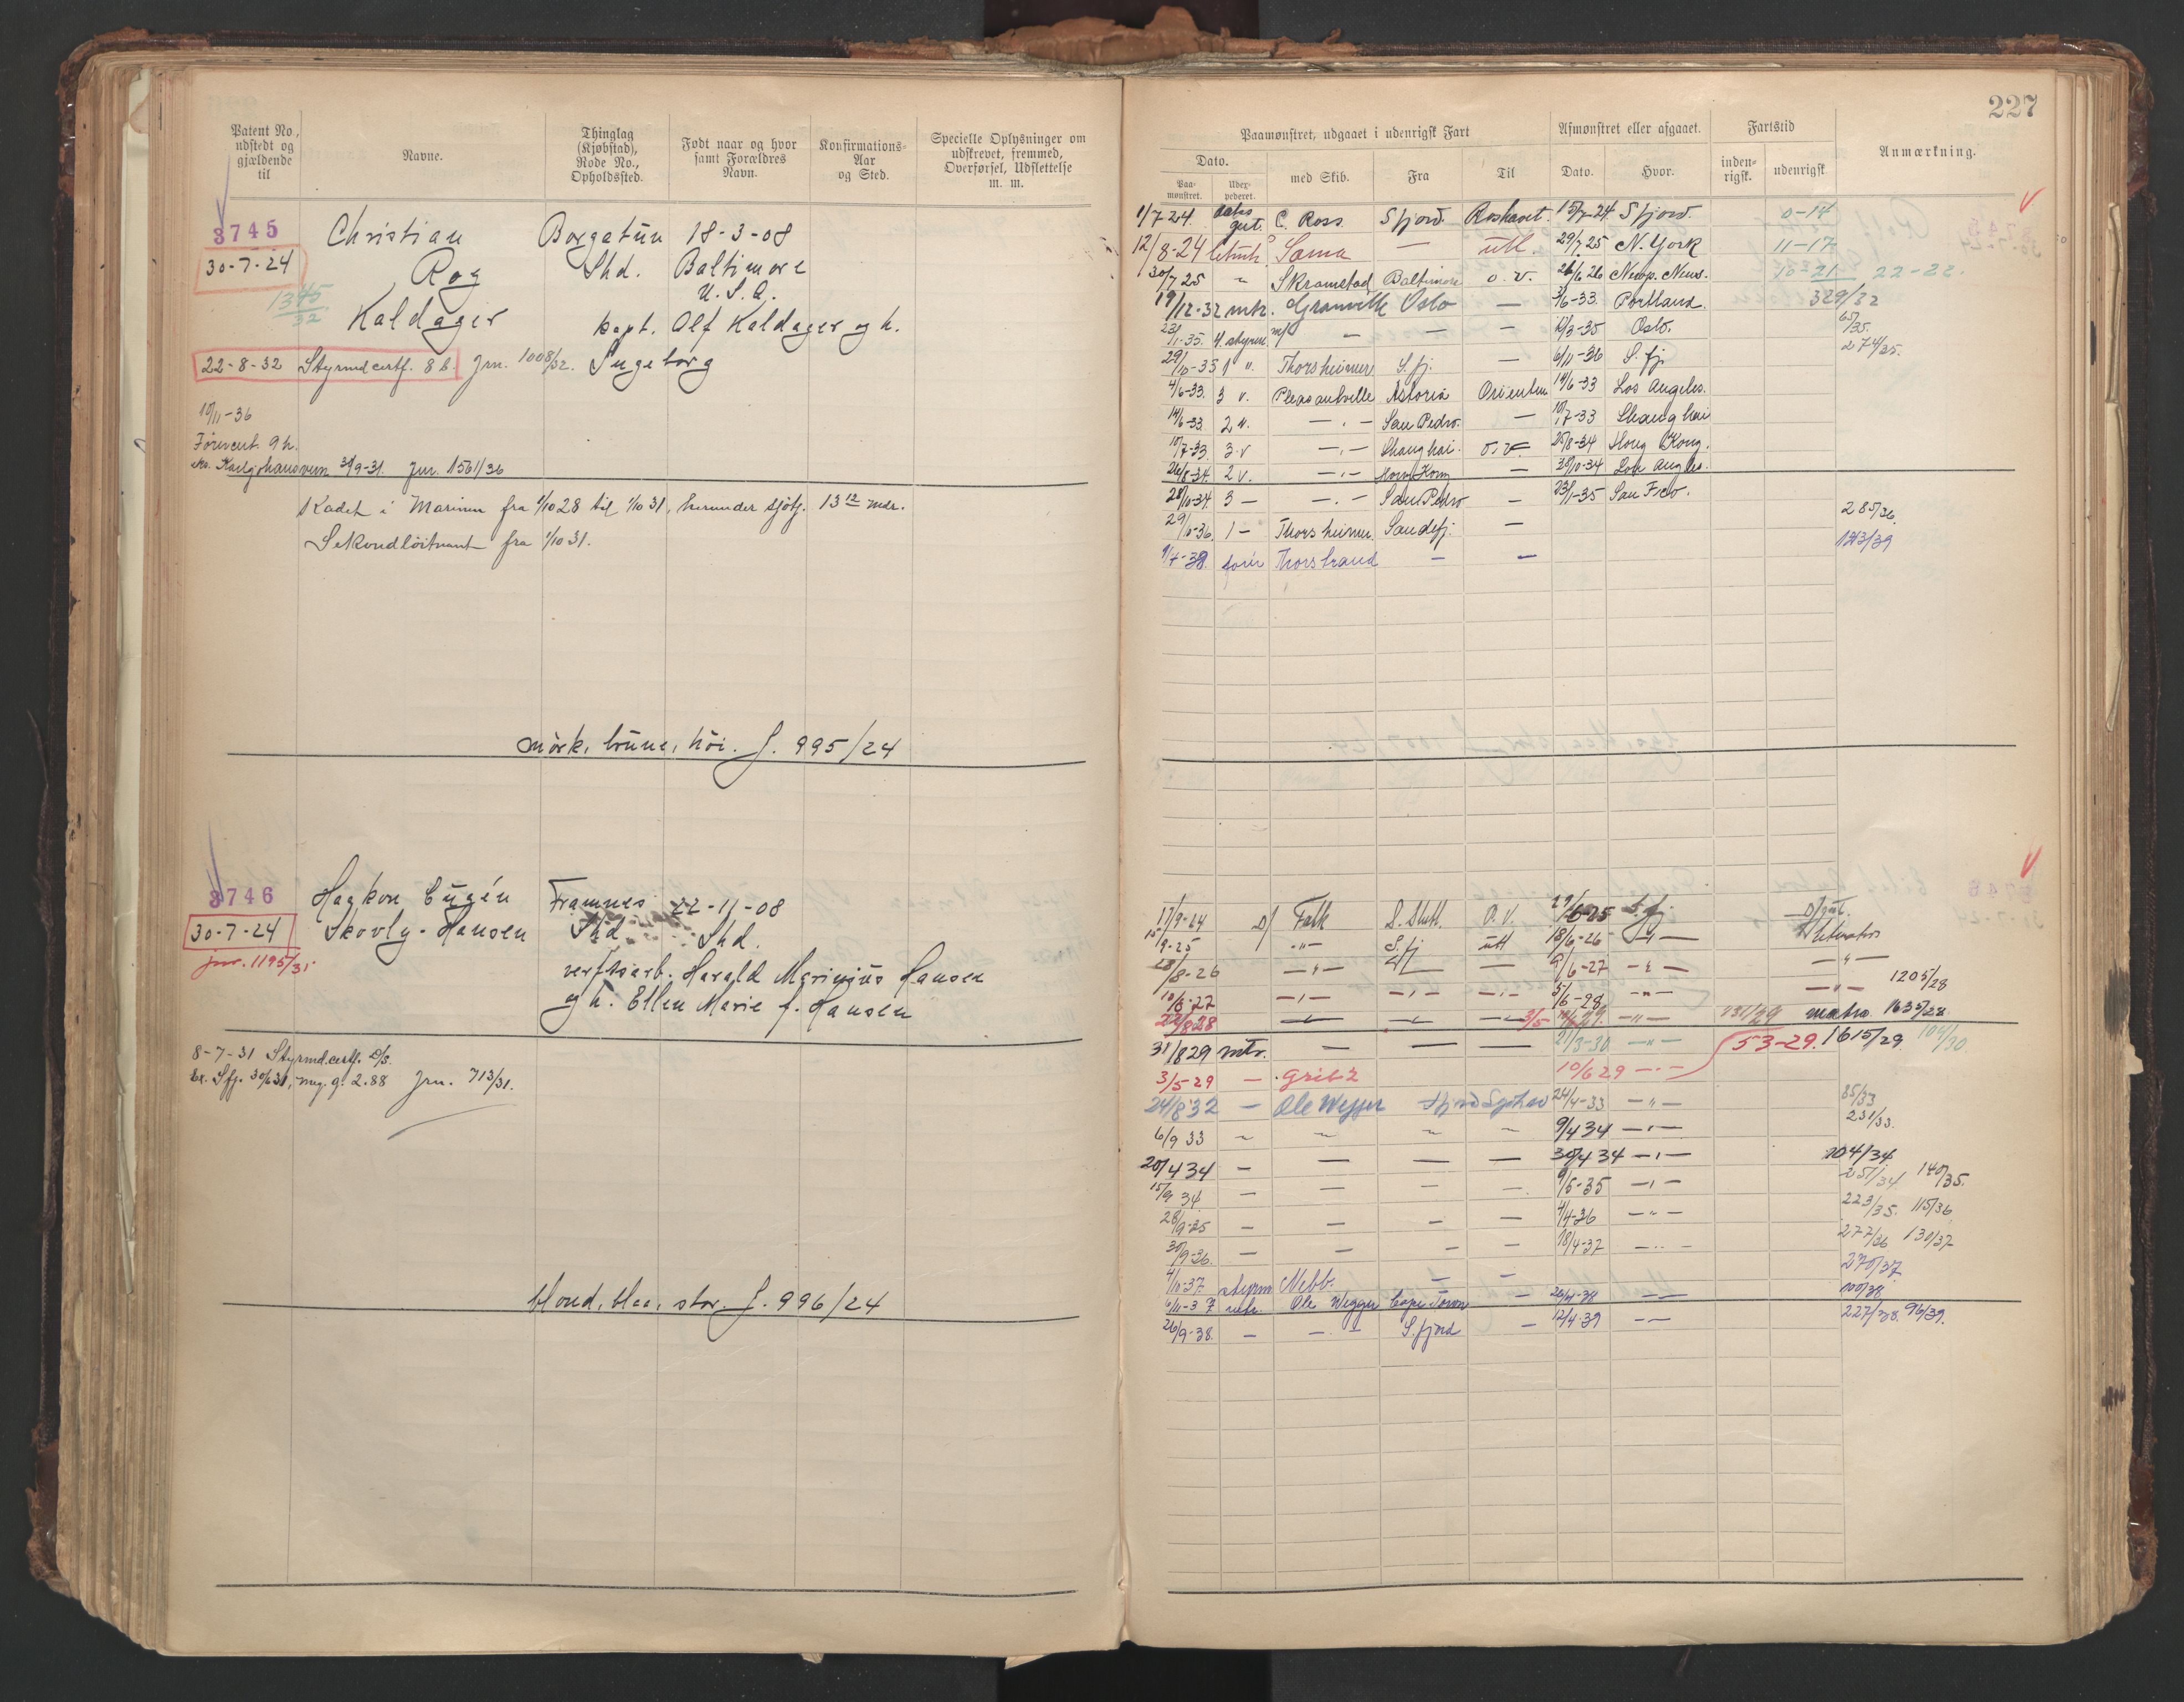 227
Patent No, udstedt og gjældende til
Navne.
Thinglag (Kjøbstad), Rode No., Opholdssted.
Født naar og hvor samt Forældres Navn.
Konfirmations-Aar og Sted.
Specielle Oplysninger om udskrevet, fremmed, Overførsel, Udslettelse m. m.
Paamønstret, udgaaet i udenrigsk Fart
Afmønstret eller afgaaet.
Fartstid
Anmærkning.
Dato.
Paa-mønstret.
Udex-pederet.
med Skib.
Fra
Til
Dato.
Hvor.
inden-rigsk.
udenrigsk
3745 Christian Borgatun 18-3-08
30-7-24 Roy Shd. Baltimore
U.S.A.
Kaldager kapt. Olf Kaldager og h.
22-8-32 Styrmd certf. 8 b. Jrn. 1008/32. Ingeborg
10/11-36
Førercert. 9 h.
Jnr. 1561/36
Kadet i Marinen fra 1/10 28 til 1/10 31, herunder sjøtj. 13 12 mdr.
Sekondløitnant fra 1/10 31.
mørk, brune, höi. J. 995/24
1/7 24. gut. C. Ross Sfjord. Rosshavet. 15/7-24 Sfjord. 0-14
12/8-24 Soma — utl. 29/7 25 N. York 11-17
30/7 25 " Skramstad Baltimore o. v. 26/6 26 Newp. News. 22-22.
19/12-32 mtr. Granville Oslo — 3/6-33. Portland. 329/32
23/1-35. 4. styrm — — — 12/3-35 Oslo. 65/35.
274/35.
29/10-35 1 " Thorsheimer S.fj. — 6/11-36 S. fj
4/6-33. 3 v. Pleasantville Astoria Orienten 14/6-33 Los Angeles.
14/6-33. 2 v. — San Pedro. — 10/7-33 Shanghai
10/7-33. 3 v — Shanghai. o. v. 25/8-34 Hong Kong.
26/8-34. 2 v. — Hong Kong — 28/10-34 Los Angles.
28/10-34. 3 — — San Pedro — 23/1-35 San Fco.
29/10-36. 1 — Thorsheimer. Sandefj. — 285/36.
1/4-38. fører Thorstrand — — 123/39
3746 Haakon Eugén Framnes 22-11-08
30-7-24 Skovly-Hansen Shd. Shd.
jnr. 1195/31 verftsarb. Harald Marinius Hansen
og h. Ellen Marie f. Hansen
8-7-31 Styrmd.certf. D/S.
Ex. Sfj. 30/6 31, mg. g. 2.88 Jrn. 713/31.
blond, blaa, stor. J. 996/24
17/9-24 D/ Falk S. Shetl. O. V. 29/6-25 S.fj
15/9-25 — " — S. fj utl 18/6-26 — " —
28/8-26 — " — — — 9/6-27 — " — — " —
10/8-27 — " — — " — — " — 5/6-28 — " — — " — 1205/28
22/8 28 — — — 3/5 — " — 731/29 matro 1635/28
31/8 29 mtr. — — — 21/3-30 — " — 53-29. 1615/29 104/30
3/5-29 — Grib 2 10/6 29 — " —
24/8 32 — Ole Wegger Sfjord Syshav 24/4-33 — " — 85/33
231/33.
6/9 33 ~ ~ ~ ~ 9/4 34 — " —
20/4 34 — — — — 30/4 34 — " — 104/34
15/9 34 — — — — 9/5-35 — " — 251/34 140/35.
28/9-35 — — — — 4/4-36 — " — 223/35. 115/36
30/9-36. — — — — 18/4-37 — " — 277/36 130/37
4/10-37. styrm Nebb. — — 270/37
6/11-37 mtr. Ole Wegger Cape Town — 26/4-38 — " — 100/38
26/9-38. — — " — S.fjord — 12/4-39 — " — 227/38. 96/39.